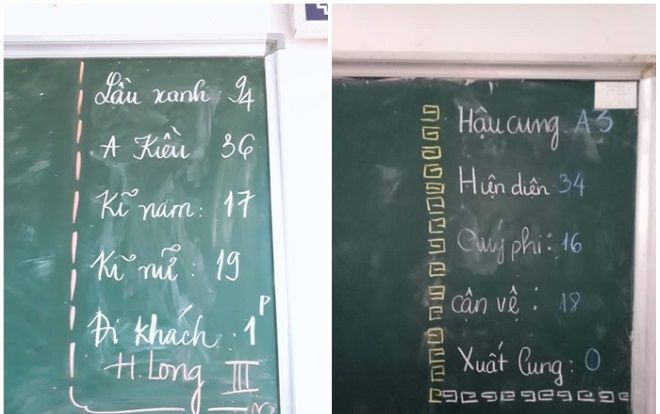 Lầu xanh: 94
A Kiều 36
Kĩ nam: 17
Kĩ nữ: 19
Đi khách: 1P
H.Long III
Hậu cung A3
Hiện diên 34
Quý phi: 16
cận vệ: 18
Xuất Cung: 0